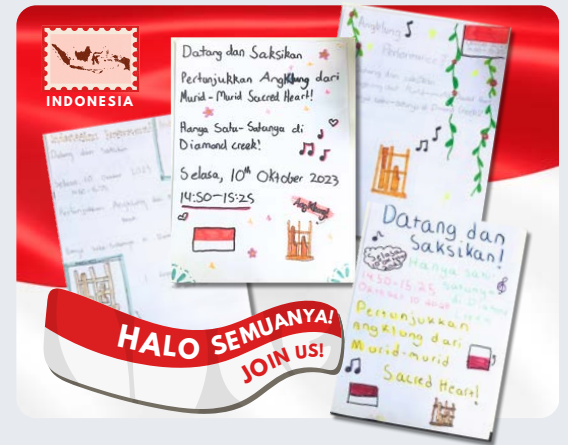 INDONESIA
Datang dan Saksikan
Pertunjukkan Angklung dari
Murid-Murid Sacred Heart!
Hanya Satu-Satunya di
Diamond creek!
Selasa, 10th Oktober 2023
14:50-15:25
Angklung!
Angklung
Performance
Datang dan Saksikan
Selasa, 10 Oktober 2023
Datang dan
Saksikan!
Selasa
Hanya satu
satunya
14:50-15:25
di Diamond
Oktober 10 2023
Creek
Pertunjukkan
Angklung dari
Murid-murid
Sacred Heart!
HALO SEMUANYA!
JOIN US!